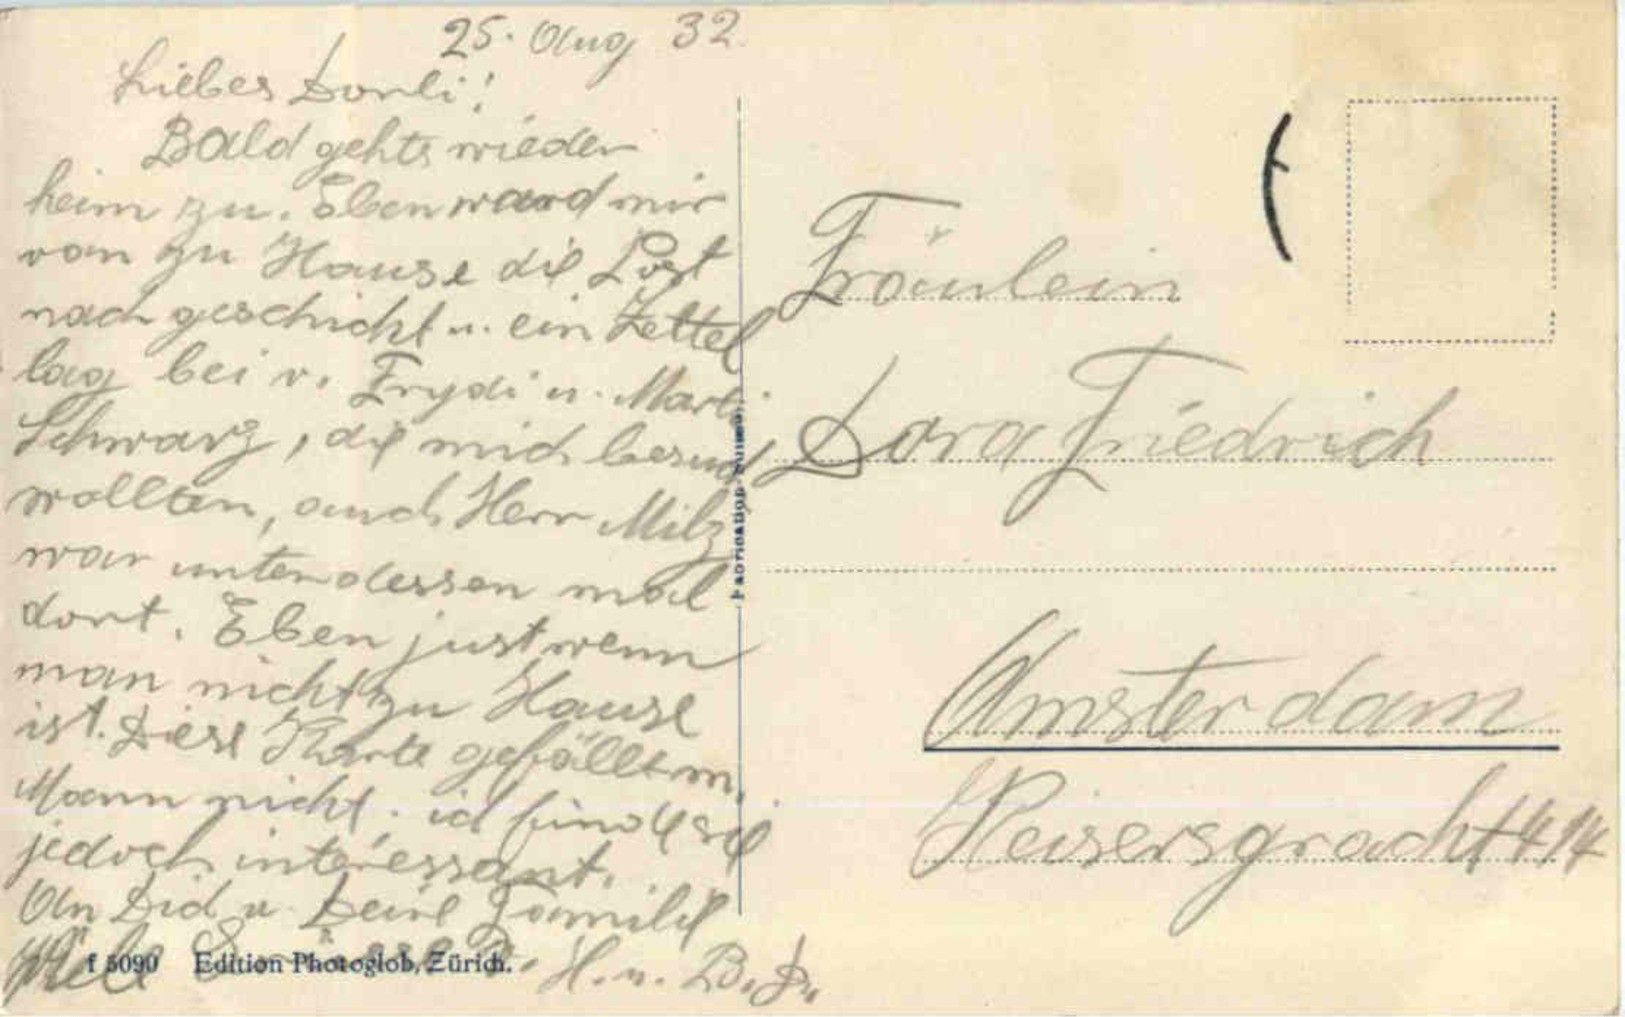 25. Aug 32.
Liebes Dorli!
Bald gehts wieder
heim zu. Eben ward mir
von zu Hause die Post
nach geschickt u. ein Zettel
lag bei v. Frydi u. Marti
Schwarz, die mich besuch
wollten, auch Herr Milz
war unterdessen mal
dort. Eben just wenn
man nicht zu Hause
ist. Diese Karte gefällt m.
Mann nicht. ich finde sie
jedoch interessant.
An Dich u. Deine Familie
viele H. u. B.
f 5090 Edition Photoglob, Zürich.
Fräulein
Dora Friedrich
Amsterdam
Keisersgracht 414